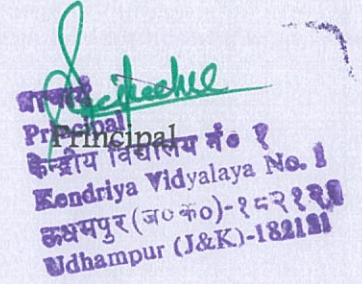 प्राचार्य
Principal
Principal
केन्द्रीय विद्यालय नं० १
Kendriya Vidyalaya No. 1
ऊधमपुर (ज० क०)-१८२१२१
Udhampur (J&K)-182121